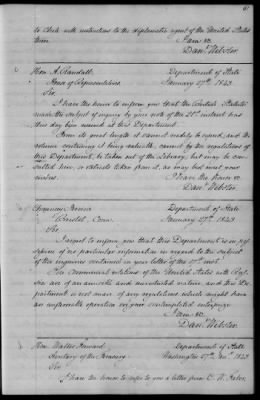 to Chili with instructions to the diplomatic agent of the United States
there.
I am &c
Danl. Webster.
Hon. A. Randall
Department of State
House of Representatives
January 27th 1843
Sir
I have the honor to inform you that the
made the subject of inquiry by your note of the 21st instant was
this day been received at this Department.
From its great length it cannot readily be copied, and the
volume containing it being valuable, cannot by the regulations of
this Department, be taken out of the Library, but may be con-
sulted here, or extracts taken from it, as may best meet your
wishes.
I have the honor &c
Danl. Webster.
Department of State
Bristol Conn.
January 27th 1843
Sir.
I regret to inform you that this Department is in pos-
session of no particular information in regard to the subject
of the inquiries contained in your letter of the 17th inst.
The Commercial relations of the United States with Rus-
sia are of an amicable and unrestricted nature, and this De-
partment is not aware of any regulations which might have
an unfavorable operation on your contemplated enterprize
I am &c
Danl. Webster.
Hon. Walter Forward
Department of State
Secretary of the Treasury
Washington 27th Jan. 1843
Sir
I have the honor to refer to you a letter from C. W.